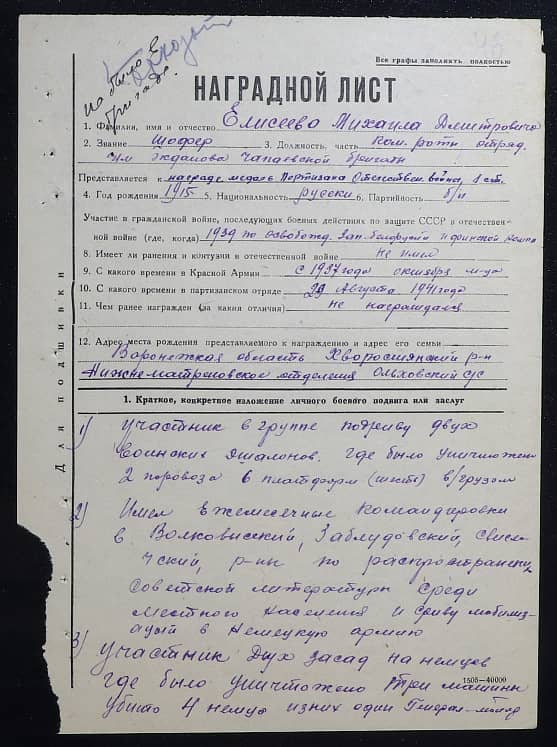 Не было в
бригаде.
Все графы заполнять полностью
НАГРАДНОЙ ЛИСТ
1. Фамилия, имя и отчество Елисеева Михаила Дмитровича
2. Звание Шофер 3. Должность, часть Ком. роты отряд.
им Жданова Чапаевской бригады
Представляется к награде медаль Партизана Отечествен. война, 1 ст.
4. Год рождения 1915 5. Национальность русски 6. Партийность б/п
Участие в гражданской войне, последующих боевых действиях по защите СССР и отечествен-
ной войне (где, когда) 1939 по освобожд. Зап. Белоруссии и финской
8. Имеет ли ранения и контузии в отечественной войне не имел
9. С какого времени в Красной Армии с 1937 года октября м-ца
10. С какого времени в партизанском отряде 29 Августа 1941 года
11. Чем ранее награжден (за какия отличия) не награждался
12. Адрес места рождения представляемого к награждению и адрес его семьи
Воронежская область Хворостянский р-н
Нижнематреновское отделения Ольховский с/с
Для подшивки
1. Краткое, конкретное изложение личного боевого подвига или заслуг
1) участник в группе подрыву двух
воинских эшалонов. где было уничтожено
2 паровоза 6 платформ (шесть) в/грузом
2) Имел ежемесячные командировки
в Волковысский, Заблудовский, Свисло-
чский, р-ны по распространени
Советской литературы среди
местного населения и срыву мобилиз-
аций в Немецкую армию
3) участник двух засад на немцев
где было уничтожено три машины
1506-40000
убито 4 немца из них один Генерал-